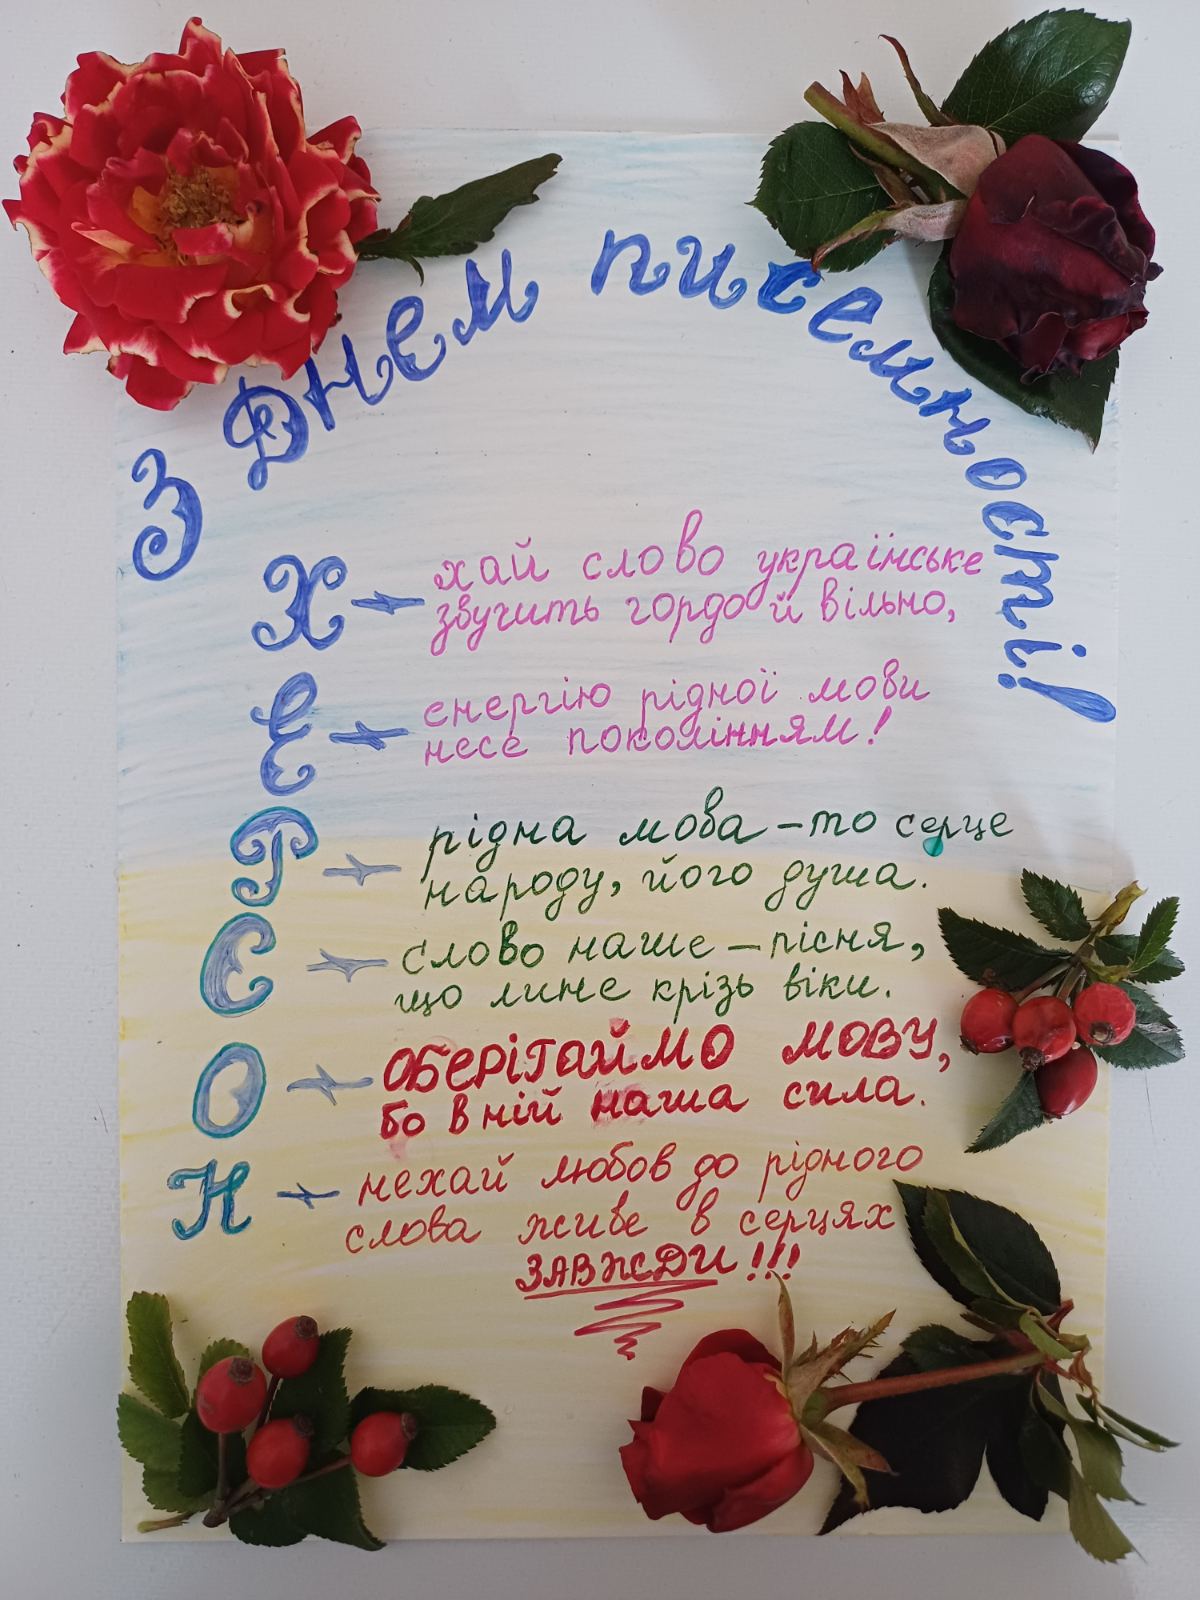 З Днем писемності!
Х - хай слово українське
звучить гордо й вільно,
Е - енергію рідної мови
несе поколінням!
Р - рідна мова - то серце
народу, його душа.
С - слово наше - пісня,
що лине крізь віки.
О - оберігаймо мову,
бо в ній наша сила.
Н - нехай любов до рідного
слова живе в серцях
ЗАВЖДИ!!!